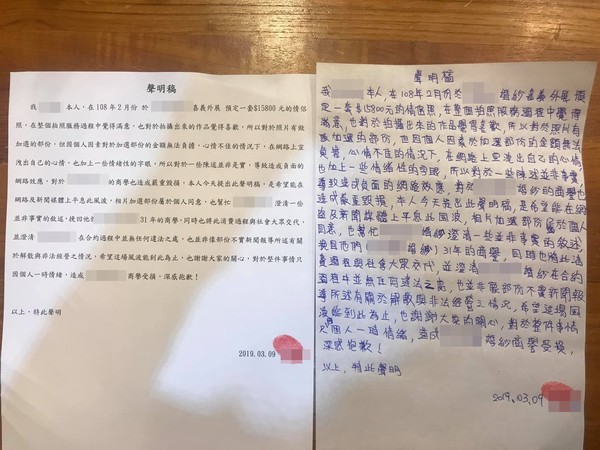 聲明稿
我 本人，在 108 年 2 月份 於 嘉義外展 預定一套$15800 元的情侶
照，在整個拍照服務過程中覺得滿意，也對於拍攝出來的作品覺得喜歡，所以對於照片有做
加選的部份，但因個人因素對於加選部份的金額無法負擔，心情不佳的情況下，在網路上宣
洩出自己的心情，也加上一些情緒性的字眼，所以對於一些陳述並非是實，導致造成負面的
網路效應，對於 的商譽也造成嚴重毀損，本人今天提出此聲明稿，是希望能在
網路及新聞媒體上平息此風波，相片加選部份屬於個人同意，也幫忙 澄清一些
並非事實的敘述，挽回他 31 年的商譽，同時也將此消費過程與社會大眾交代，
並澄清 在合約過程中並無任何違法之處，也並非像部份不實新聞報導所述有關
於解散與非法經營之情況，希望這場風波能到此為止，也謝謝大家的關心，對於整件事情
只因個人一時情緒，造成 商譽受損，深感抱歉！
以上，特此聲明
2019.03.09
聲明稿
我 本人，在108年2月份於 婚紗嘉義外展 預
定一套$15800元的情侶照，在整個拍照服務過程中覺得
滿意，也對於拍攝出來的作品覺得喜歡，所以對於照片有
做加選的部份，但因個人因素對於加選部份的金額無法
負擔，心情不佳的情況下，在網路上宣洩出自己的心情
也加上一些情緒性的字眼，所以對於一些陳述並非是實
導致造成負面的網路效應，對於 婚紗的商譽也
造成嚴重毀損，本人今天提出此聲明稿，是希望能在網
路及新聞媒體上平息此風波，相片加選部份屬於個人
同意，也幫忙 婚紗澄清一些並非事實的敘述
挽回他們( 婚紗)31年的商譽，同時也將此消
費過程與社會大眾交代，並澄清 婚紗在合約
過程中並無任何違法之處，也並非像部份不實新聞報
導所述有關於解散與非法經營之情況，希望這場風
波能到此為止，也謝謝大家的關心，對於整件事情
只因個人一時情緒，造成 婚紗商譽受損，
深感抱歉！
以上，特此聲明
2019.03.09